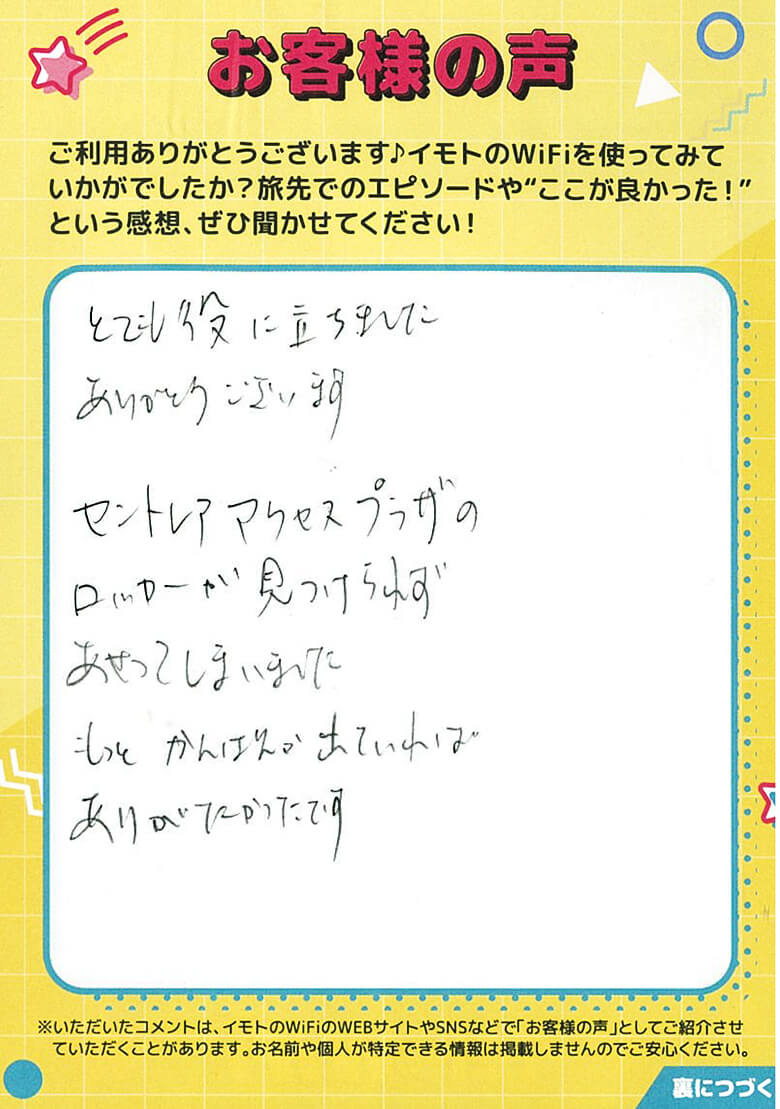 お客様の声
ご利用ありがとうございます♪イモトのWiFiを使ってみて
いかがでしたか？旅先でのエピソードや“ここが良かった！”
という感想、ぜひ聞かせてください！
とても役に立ちました
ありがとうございます
セントレア アクセスプラザの
ロッカーが見つけられず
あせってしまいました
もっと かんばんが出ていれば
ありがたかったです
※いただいたコメントは、イモトのWiFiのWEBサイトやSNSなどで「お客様の声」としてご紹介させ
ていただくことがあります。お名前や個人が特定できる情報は掲載しませんのでご安心ください。
裏につづく